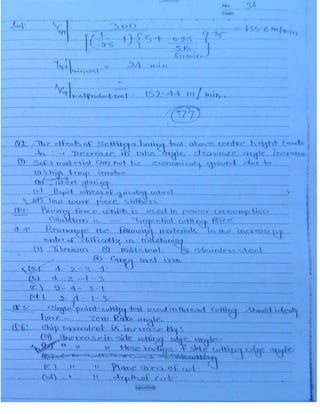 No 38
Date
Sol:
V opt = 300 / [(1/.25 - 1){5+ 0.25 / 50min}].25 = 135.6 m/min
T opt = 24 min
V opt = 152.44 m/min.
Q1. The effects of setting a boring tool above centre height leads
to :- Decrease in rake angle, clearance angle increase
Soft material can not be economically ground due to
(a) high temp involve
(b) wheel glazing
(c) Rapid wheel of grinding wheel
(d) low work piece stiffness
Q3: Primary force which is used in power consumption
calculation is — Tangential cutting force
Q.4: Rearrange the following materials in the increasing
order of difficulty in machining
(1) Titanium (2) mild steel (3) stainless-steel
(4) Grey cast iron
(a) 4-2-3-1
(b) 4-2-1-3
(c) 2-4-3-1
(d) 2-4-1-3
Q.5: Single point cutting tool used in thread cutting should ideally
have — zero Rake angle.
Q.6: Chip equivalent is increase by:
(a) Increase in side cutting edge angle
(b) " " Nose radius & side cutting edge angle
(c) " " Plane area of cut
(d) " " depth of cut